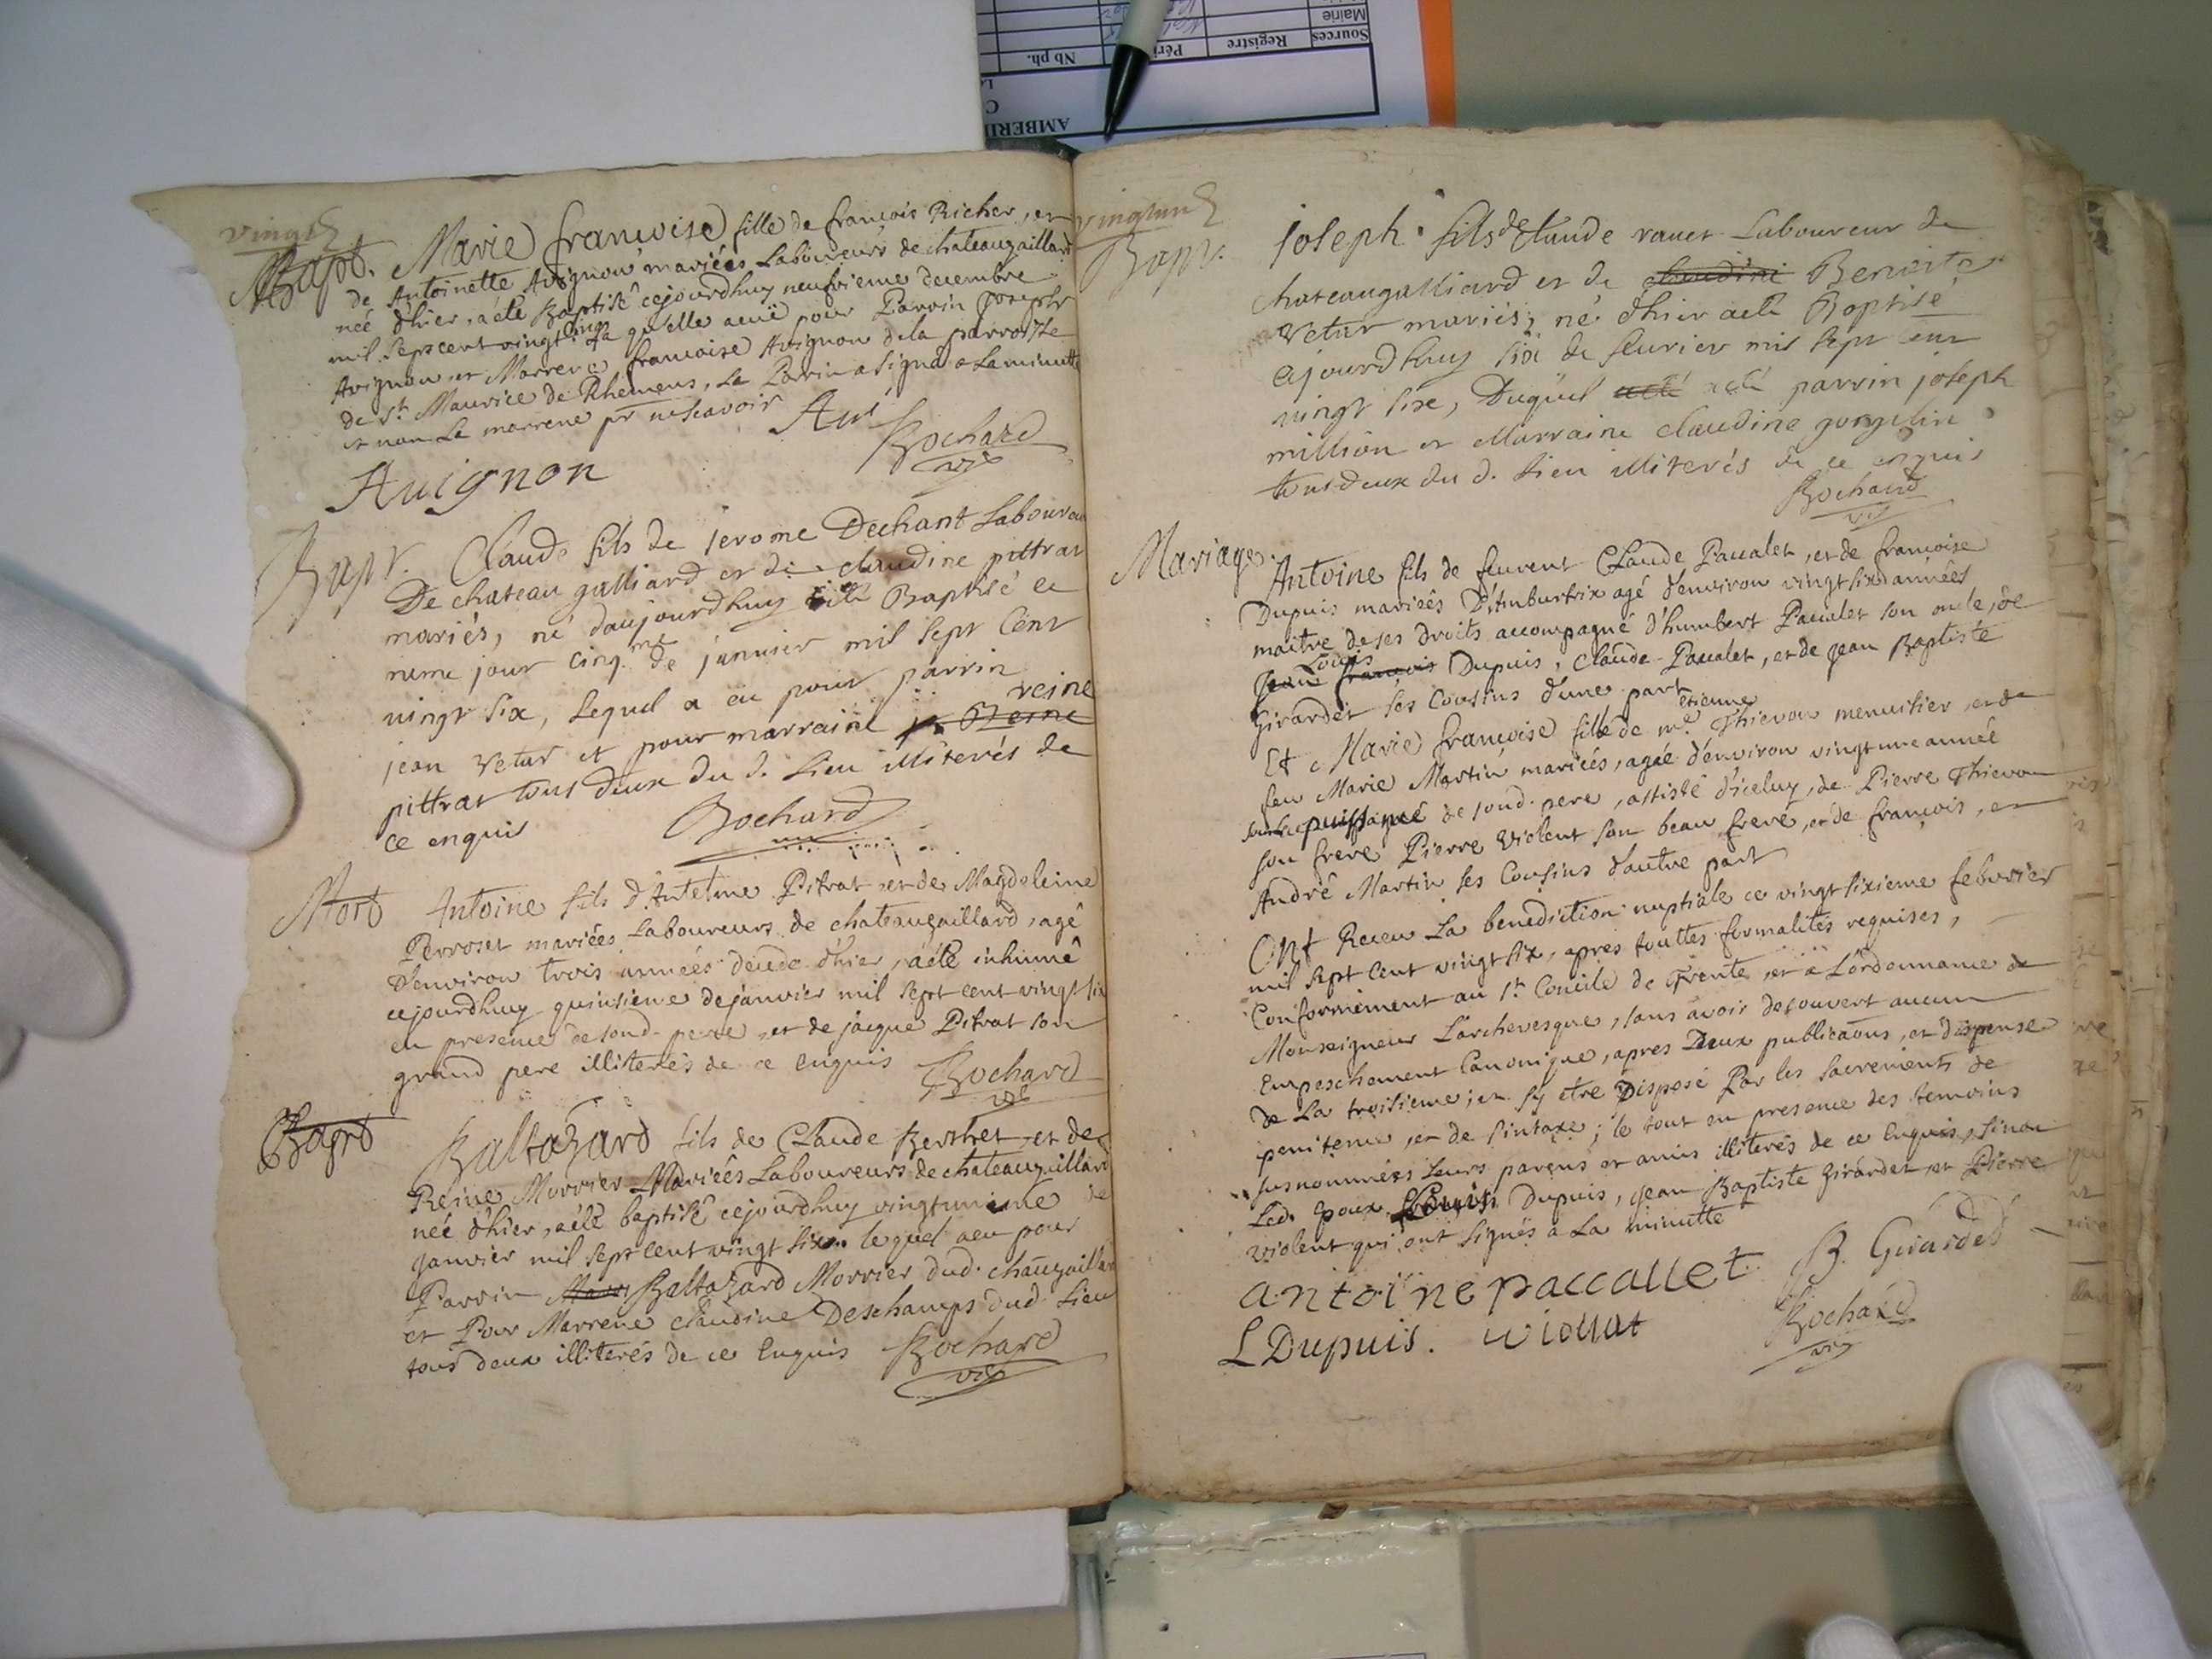 vingt
Bapt. Marie francoise fille de francois Richer, et
de Antoinette Avignon mariées Laboureurs de chateaugaillard
née d'hier, a été Baptisê cejourdhuy neufvieme decembre
mil sept cent vingt cinq qu'elle a eüe pour Parrin Joseph
Avignon et Marrene francoise Avignon de la parroisse
de St. Maurice de Rhemens, Le Parrin a signé a La minutte
et non La marrene pr ne scavoir
Avi
Bochard
vic
Avignon
Bapt. Claude fils de jerome Dechant Laboureur
De chateau galliard et de claudine pittrat
mariés, né daujourdhuy a été Baptisé ce
meme jour cinq.me de janvier mil sept cent
vingt six, Lequel a eu pour parrin
jean vetar et pour marraine reine
pittrat tous deux du d. Lieu illiterés de
ce enquis
Bochard
vic
Mort Antoine fils d'Antelme Pitrat et de Magdeleine
Perroset mariées Laboureurs de chateaugaillard, agê
d'environ trois années decede d'hier, a été inhumê
cejourdhuy quinsieme de janvier mil sept cent vingt six
en presence de sond. pere, et de jacque Pitrat son
grand pere illiterés de ce enquis
Bochard
vic
Bapt Baltazard fils de Claude Berthet et de
Reine Morrier Mariées Laboureurs de chateaugaillard
née d'hier, a été baptisê cejourdhuy vingtunieme de
janvier mil sept cent vingt six lequel a eu pour
Parrin Baltazard Morrier dud. chaugaillard
et Pour Marrene claudine Deschamps dud. Lieu
tous deux illiterés de ce Enquis
Bochard
vic
vingtun
Bapt. joseph fils de Claude ravet Laboureur de
chateaugalliard et de claudine Benoite
vetar mariés, né d'hier a été Baptisé
ajourdhuy six de feuvrier mil sept cent
vingt six, Duquel a été parrin joseph
million et Marraine claudine gongelin
tous deux du d. Lieu illiterés de ce enquis
Bochard
vic
Mariage Antoine fils de fluvent Claude Pacalet, et de francoise
Dupuis mariées D'Amburtrix agé d'environ vingt six années
maitre de ses droits accompagné d'humbert Pacalet son oncle, de
Louis
jean francois Dupuis, Claude Pacalet, et de jean Baptiste
Girardet ses Cousins d'une part
Et Marie francoise fille de mre. etienne Thievon menuisier, et de
feu Marie Martin mariées, agée d'environ vingt une année
sous la puissance de sond. pere, assisté d'iceluy, de Pierre Thievon
son frere Pierre violent son beau frere, et de francois, et
André Martin ses Cousins d'autre part
Ont Receu La benediction nuptiale ce vingt sixieme febvrier
mil sept cent vingt six, apres touttes formalités requises,
Conformement au St. Concile de Trente, et a L'ordonnance de
Monseigneur L'archevesque, sans avoir decouvert aucun
Empeschement Canonique, apres Deux publicaons, et dispense
de La troisieme; et sy etre Disposé Par les sacrements de
penitence, et de sintaxe; le tout en presence des temoins
susnommées leurs parens et amis illiterés de ce Enquis, sinon
Led. epoux Louis Dupuis, jean Baptiste Girardet et Pierre
violent qui ont signés a La minutte
antoine paccallet
B. Girardet
L Dupuis.
violat
Bochard
vic
AMBERI
Nb ph.
Péri
Registre
Sources
Mairie